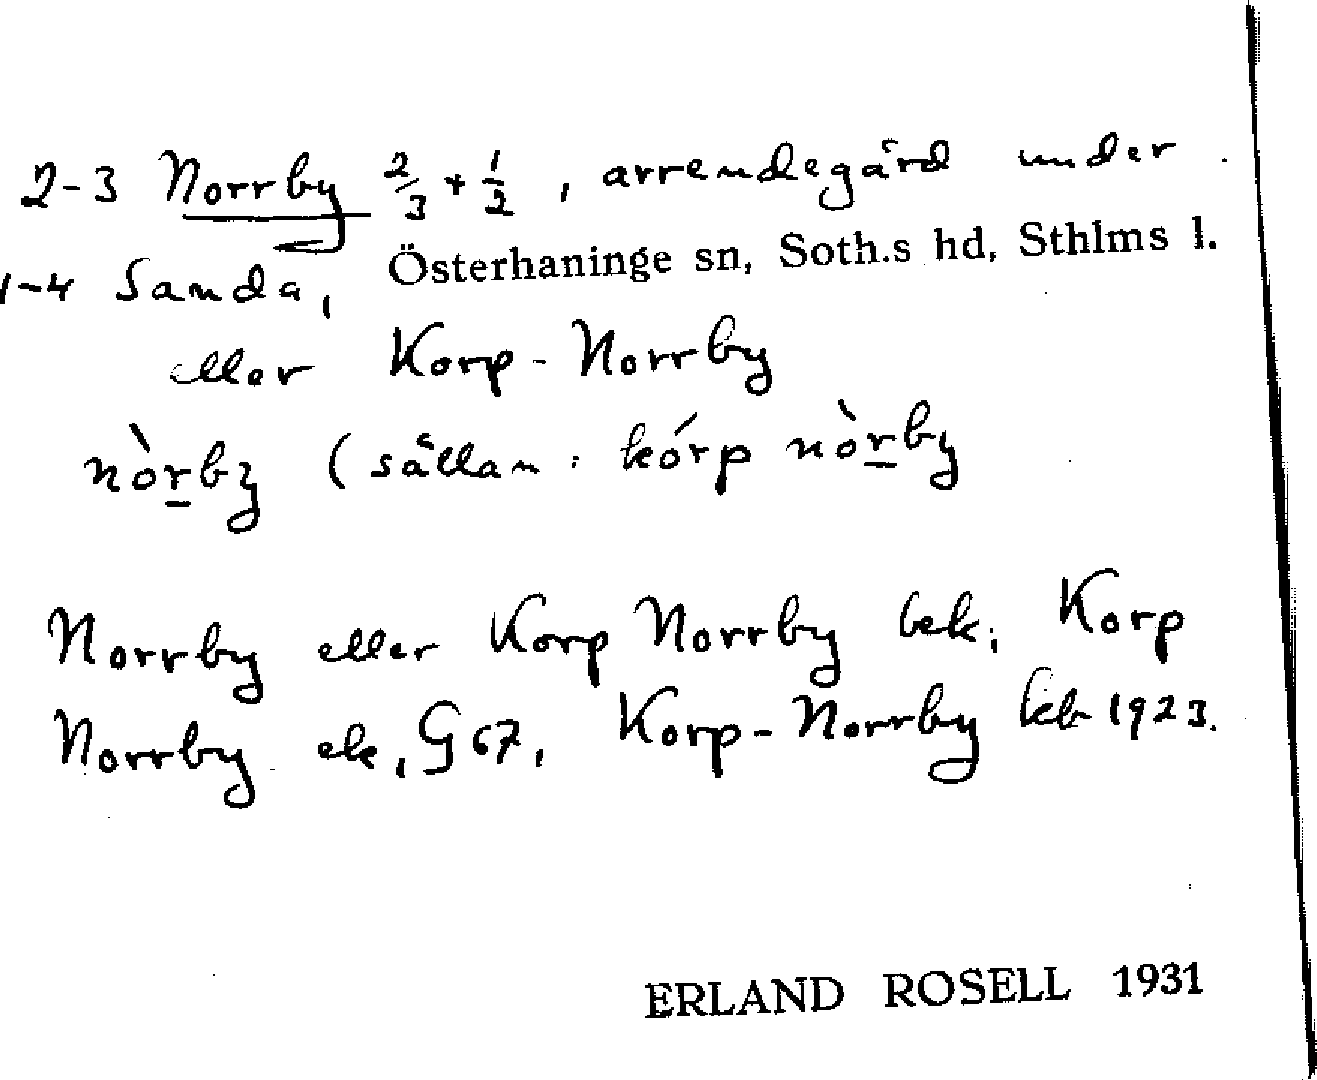 2-3 Norrby 2/3 + 1/2, arrendegård under
1-4 Sanda, Österhaninge sn, Soth.s hd, Sthlms l.
eller Korp-Norrby
nòrby (sällan: kórp nòrby
Norrby eller Korp Norrby bek; Korp
Norrby ek, G67, Korp-Norrby kb 1923.
ERLAND ROSELL 1931